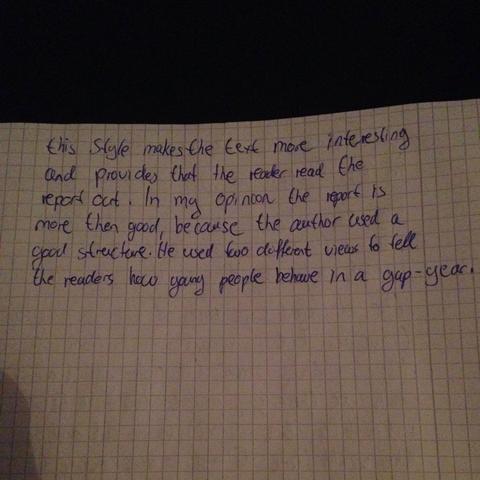 this Style makes the text more interesting
and provides that the reader read the
report out. In my opinion the report is
more then good, because the author used a
good structure. He used two different views to tell
the readers how young people behave in a gap-year.